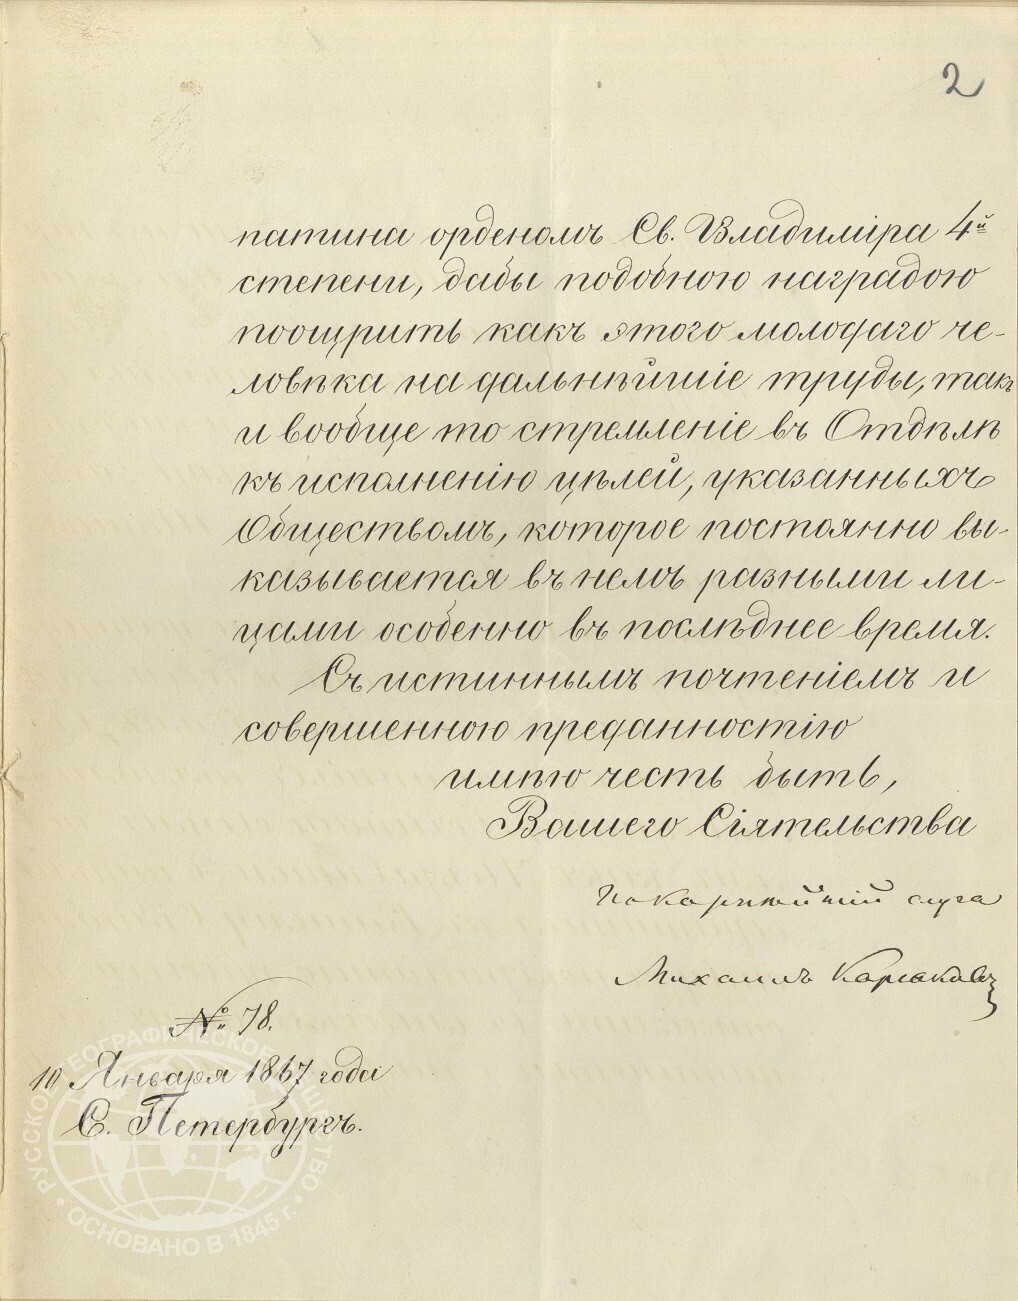 2
патина орденомъ Св. Владиміра 4й
степени, дабы подобною наградою
поощрить какъ этого молодаго че-
ловѣка на дальнѣйшіе труды, такъ
и вообще то стремленіе въ Отдѣлѣ
къ исполненію цѣлей, указанныхъ
Обществомъ, которое постоянно вы-
казывается въ немъ разными ли-
цами особенно въ послѣднее время.
Съ истиннымъ почтеніемъ и
совершенною преданностію
имѣю честь быть,
Вашего Сіятельства
покорнѣйшій слуга
Михаилъ Корсаковъ
№ 78.
10 Января 1867 года
С. Петербургъ.
РУССКОЕ ГЕОГРАФИЧЕСКОЕ ОБЩЕСТВО
• ОСНОВАНО В 1845 г. •